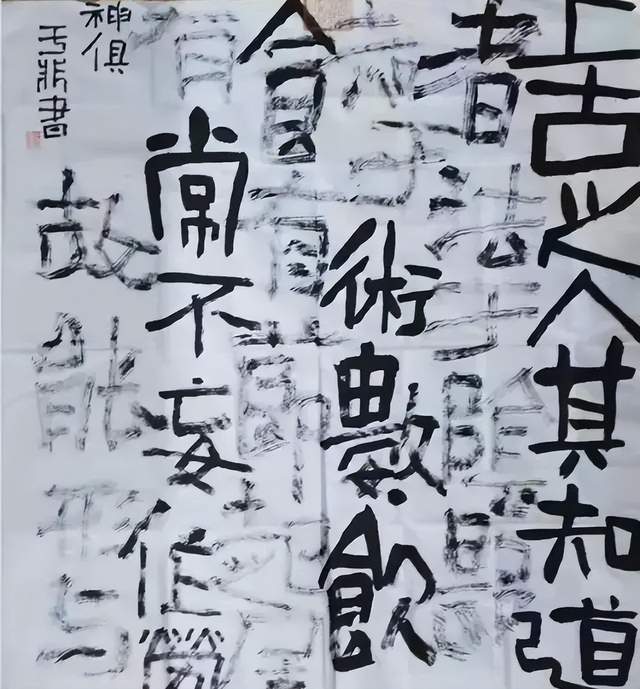 上古之人其知道
者法于陰陽
和于術數飲
食有節起居
有常不妄作勞
故能形与
神俱
非書